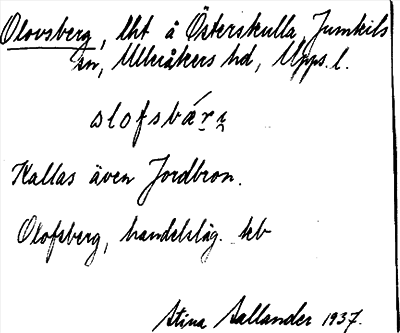 Olovsberg, lht å Österskulla, Jumkils
sn, Ulleråkers hd, Upps. l.
olofsbæ´rı̥
Kallas även Jordbron.
Olofsberg, handelsläg. kb
Stina Sallander 1937.